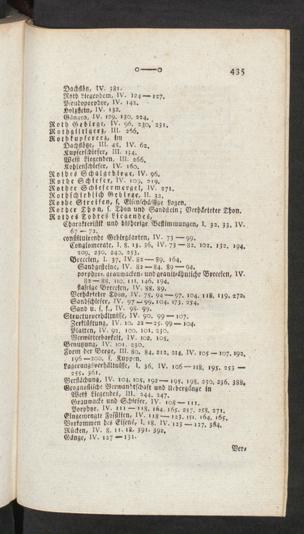 435
Dachflöz, IV. 381.
Roth Liegendem, IV. 124—127.
Pseudoporphyr, IV. 142.
Holzstein, IV. 132.
Gängen, IV. 109, 130, 224,
Roth Gebirge, IV. 96, 230, 231.
Rothgiltigerz, III. 266,
Rothkupfererz, im
Dachflöze, III. 45, IV. 62,
Kupferschiefer, III. 134.
Weiß Liegenden, III. 266,
Kohlenschiefer, IV. 160.
Rothes Schalgebirge, IV. 96,
Rothe Schiefer, IV. 103, 219.
Rother Schiefermergel, IV. 271.
Rothschieblich Gebirge, II. 32,
Rothe Streifen, s. Eisenschüssige Lagen.
Rother Thon, s. Thon und Sandstein; Verhärteter Thon.
Rothes Todtes Liegendes,
Charakteristik und bisherige Bestimmungen, I. 32, 33, IV.
67—72,
constituirende Gebirgsarten, IV. 73—99.
Conglomerate, I. 8, 13, 36, IV. 73—82, 102, 132, 194,
209, 230, 240, 253.
Breccien, I. 37, IV. 82—89, 164,
Sandgesteine, IV. 82—84, 89—94.
porphyr-, grauwacken- und granitähnliche Breccien, IV.
82—88, 110, 111, 146, 194,
kalkige Breccien, IV. 88, 89.
Verhärteter Thon, IV. 75, 94—97, 104, 118, 119, 272,
Sandschiefer, IV. 97—99, 104, 173, 254,
Sand u. s. f., IV. 98, 99.
Structurverhältnisse, IV. 90, 99—107.
Zerklüftung, IV. 10, 22—25, 99—104.
Platten, IV. 91, 100, 101, 230.
Verwitterbarkeit, IV. 102, 105,
Benutzung, IV. 101, 230,
Form der Berge, III. 80, 84, 212, 214, IV. 105—107, 192,
196—200, s. Kuppen.
Lagerungsverhältnisse, I. 36, IV. 106—118, 195, 253—
255, 361.
Verflächung, IV. 104, 105, 192—195, 198, 230, 236, 388,
Geognostische Verwandtschaft und Uebergänge in
Weiß Liegendes, III. 244, 247.
Grauwacke und Schiefer, IV. 108—111,
Porphyr, IV. 111—118, 164, 165, 257, 258, 271.
Eingemengte Fossilien, IV. 118—123, 151, 164, 165,
Vorkommen des Eisens, I. 18, IV. 123—127, 384,
Rücken, IV. 8, 11, 18, 391, 392,
Gänge, IV. 127—131.
Ver-